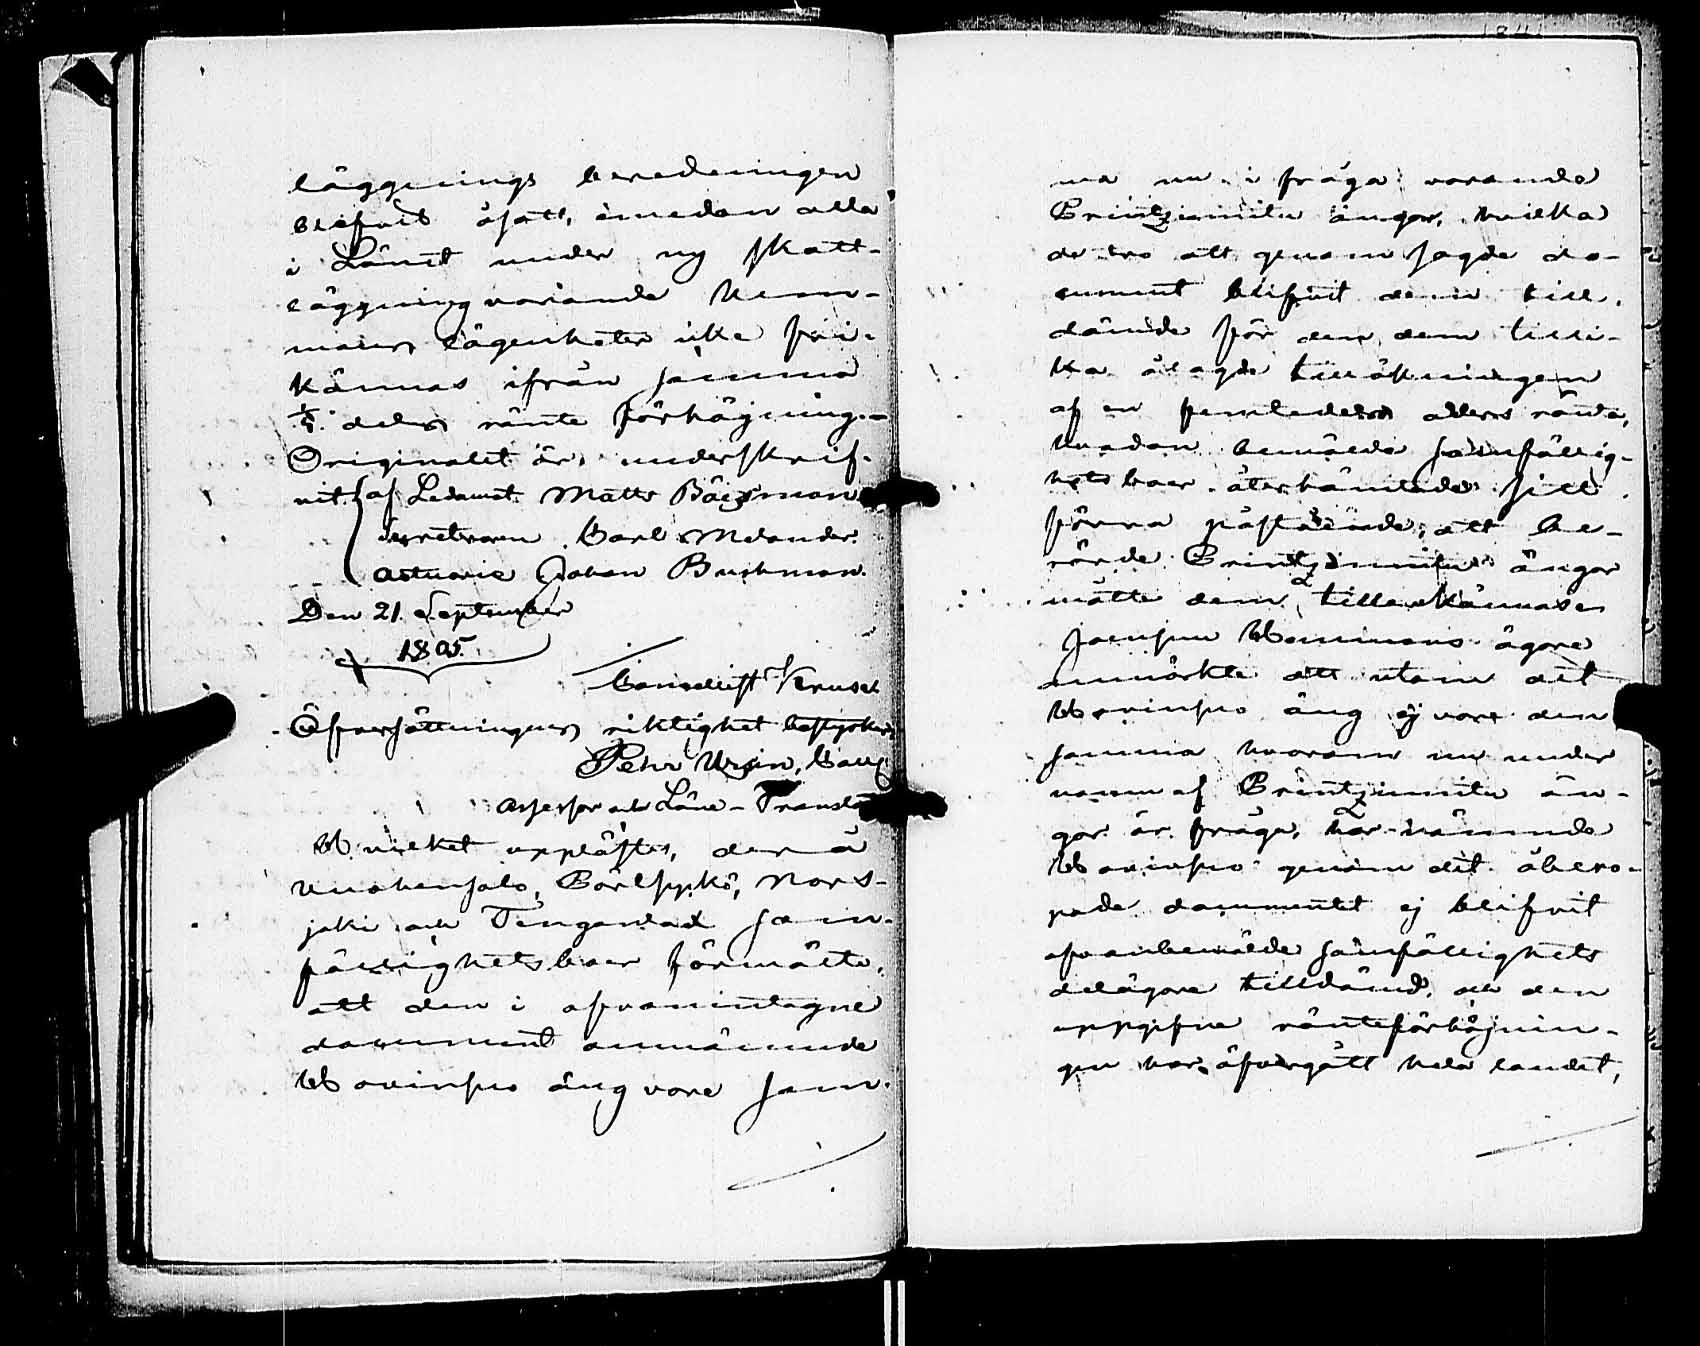 läggnings beredningen
blifvit åsatt, emedan alla
i Länet under ny skatt-
läggning varande Hem-
mans lägenheter icke fri-
kännas ifrån samma
1/5 dels ränte förhöjning.-
Originalet är underskrif-
vit af Ledamot. Matts Bärgman
Secreteraren Carl Melander
Actuarie Johan Buchman.
Den 21. September
1805.
Canselist Kruse
Öfversättningens riktighet bestyrker
Pehr Ursin, Coll
Assessor och Läne-Translat
Hvilket upplästes, der å
Vuohensalo, Bärlsyskö, Nors-
joki och Tengenlad Sam-
fällighets boer förmälte,
att den i ofvanintagne
document omnämnde
Hovinsuo äng vore sam-
ma nu i fråga varande
Printzinnitu ängar, hvilka
de tro att genom sagde do-
cument blifvit dem till-
dömde för den dem tilli-
ka ålagde tillökningen
af en femtedels alldels ränta,
hvadan bemälde samfällig-
hets boer återhämtade sitt
förra påstående, att be-
rörde Printzinnitu ängar
måtte dem tillerkännas.
Jamsen Hemmans ägare
anmärkte att utom det
Hovinsuo äng ej vore den
samma hvarom nu under
namn af Printzinnitu än-
gar är fråga, har nämnde
Hovinsuo genom det åbero-
pade documentet ej blifvit
ofvanbemälde samfällighets
delägare tilldömd, och den
uppgifne ränteförhöjnin-
gen har öfvergått hela landet,